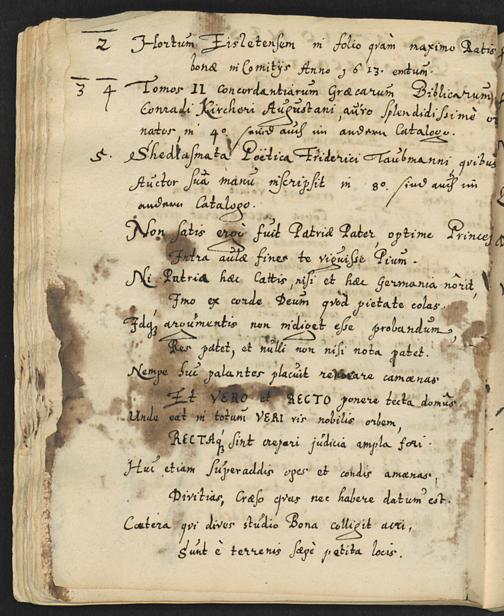 2 Hortum Eistetensem in folio qvàm maximo Ratis
bonæ in Comitijs Anno 1613. emtum.
3 4 Tomos II concordantiarum Græcarum Biblicarum
Conradi Kircheri Augustani, auro splendidissimè or
natos, in 4º. sind auch im andern Catalogo.
5. Shediasmata Poëtica Friderici Taubmanni, qvibus
Auctor suâ manu inscripsit in 8º. sind auch im
andern Catalogo.
Non satis fuit Patriæ Pater, optime Princeps
Intra aulæ fines te viguisse Pium.
Ni Patria hæc Cattis, nisi et hæc Germania nôrit,
Imo ex corde Deum qvod pietate colas.
Idq; argumentis non indiget esse probandum,
Res patet, et nulli non nisi nota patet.
Nempe huc palantes placuit revocare camœnas
Et VERO et RECTO ponere tecta domûs
Unde eat in totum VERI vis nobilis orbem,
RECTAq; sint crepari judicia ampla fori.
Huic etiam superaddis opes et condis amœnas,
Divitias, Crœso qvas nec habere datum est.
Cætera qvi divos studio Bona colligit acri,
Sunt è terrenis sæpè petita locis.